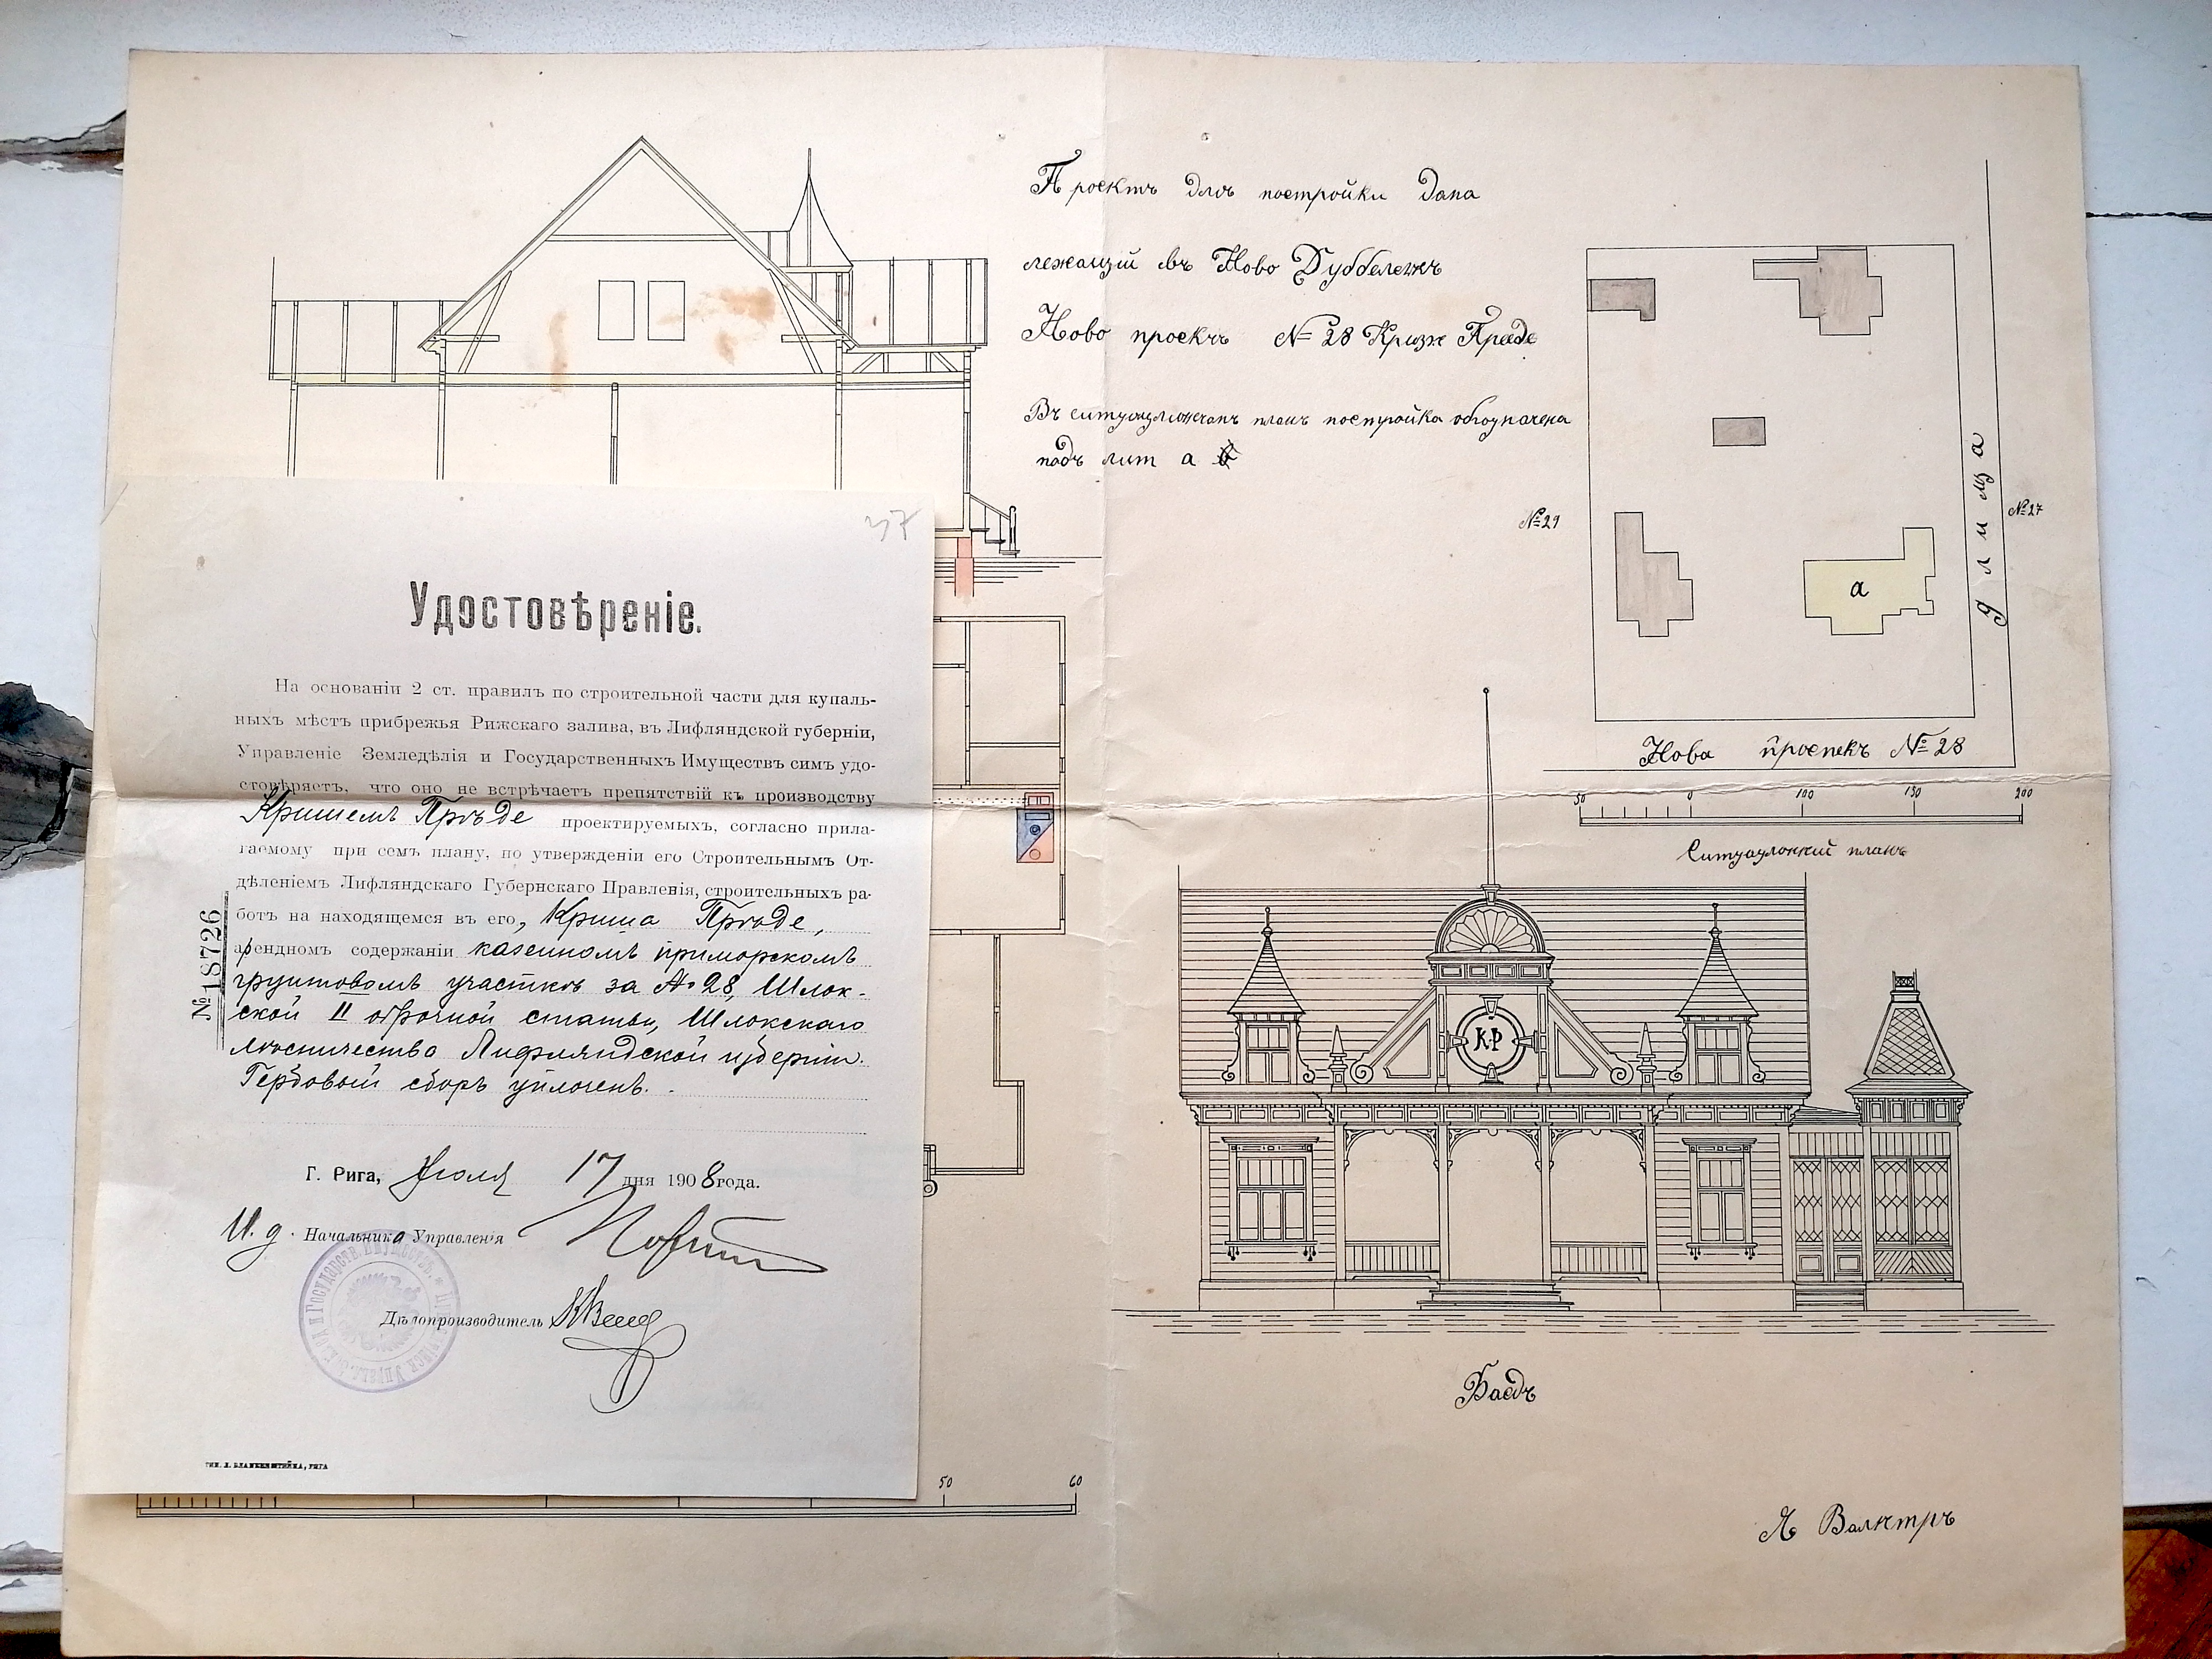 Проектъ длъ постройки дапа
лежащій въ Ново Дуббеленъ
Ново проекъ № 28 Кризъ Преде
Въ планъ постройка обозначена
подъ лит а
№ 29
№ 27
улица
а
Нова проспекъ № 28
50 0 100 150 200
планъ
37
Удостовѣреніе.
На основаніи 2 ст. правилъ по строительной части для купаль-
ныхъ мѣстъ прибрежья Рижскаго залива, въ Лифляндской губерніи,
Управленіе Земледѣлія и Государственныхъ Имуществъ симъ удо-
стовѣряетъ, что оно не встрѣчаетъ препятствій къ производству
Кришемъ Прѣде проектируемыхъ, согласно прила-
гаемому при семъ плану, по утвержденіи его Строительнымъ От-
дѣленіемъ Лифляндскаго Губернскаго Правленія, строительныхъ ра-
ботъ на находящемся въ его, Криша Прѣде,
арендномъ содержаніи казенномъ приморскомъ
грунтовомъ участкѣ за № 28, Шлок-
ской II оброчной статьи, Шлокскаго
лѣсничества Лифляндской губерніи.
Гербовый сборъ уплоченъ.
№ 18726
Г. Рига, Іюля 17 дня 1908 года.
И. д. Начальника Управленія
Дѣлопроизводитель
ТИП. Л. БЛАНКЕНШТЕЙНА, РИГА
К.Р
Фасдъ
50 60
Я Валктръ